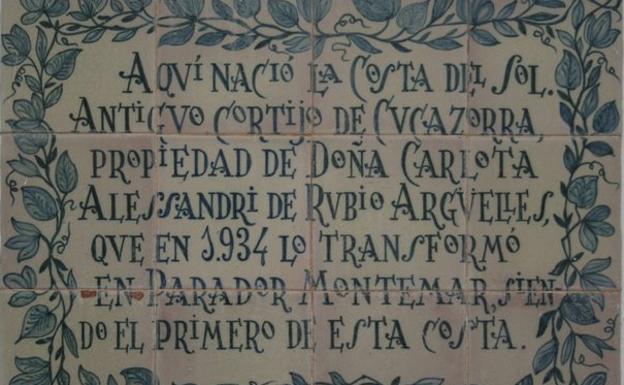 AQVÍ NACIÓ LA COSTA DEL SOL.
ANTIGVO CORTIJO DE CVCAZORRA,
PROPIEDAD DE DOÑA CARLOTA
ALESSANDRI DE RVBIO ARGVELLES,
QVE EN 1.934 LO TRANSFORMÓ
EN PARADOR MONTEMAR, SIEN-
DO EL PRIMERO DE ESTA COSTA.